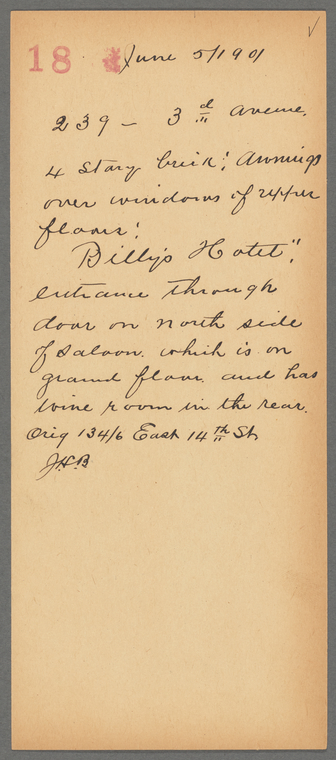 18 June 5/1901
239 - 3d Avenue.
4 Story brick; Awnings
over windows of upper
floors;
Billy's Hotel";
entrance through
door on north side
of saloon. which is on
ground floor. and has
wine room in the rear.
Orig 134/6 East 14th St
JHB